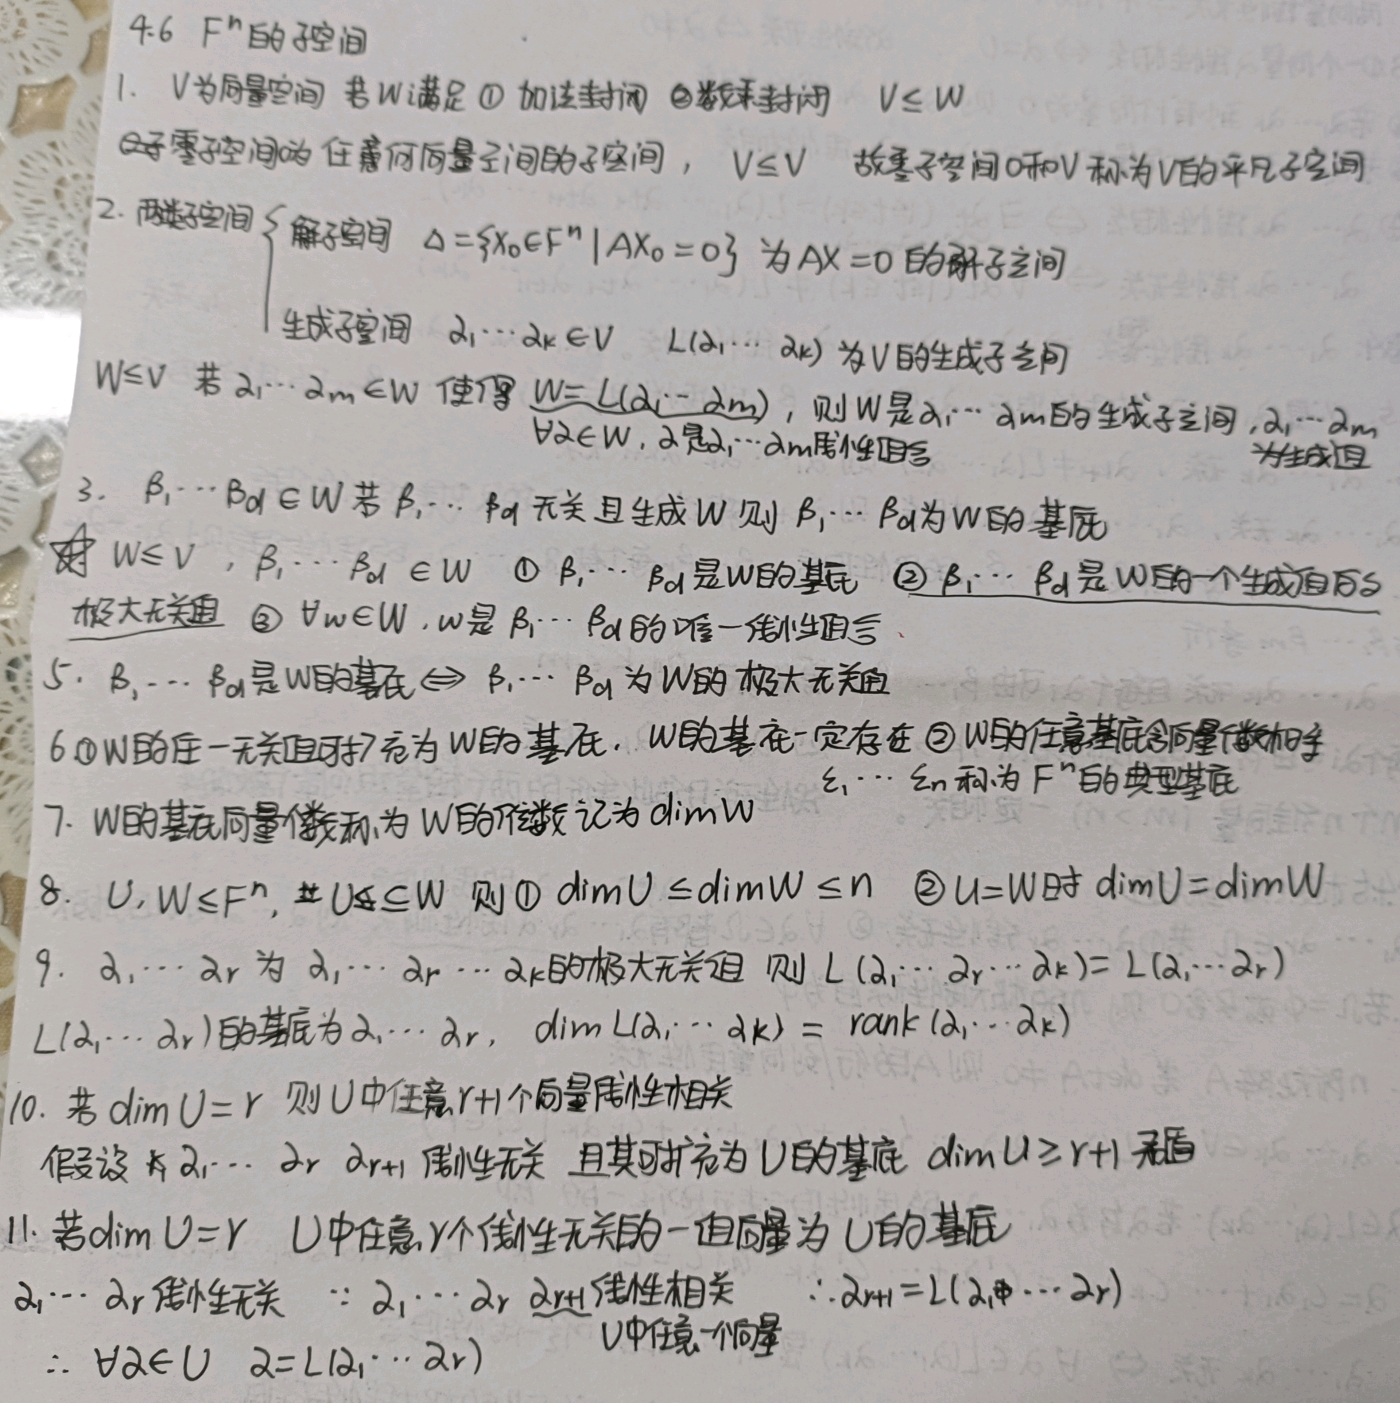 4.6 Fⁿ的子空间
1. V为向量空间 若W满足 ① 加法封闭 ②数乘封闭 V≤W
零子空间为任意何向量空间的子空间， V≤V 故零子空间0和V称为V的平凡子空间
2. 两类子空间 { 解子空间 Δ={X₀∈Fⁿ|AX₀=0} 为AX=0的解子空间
生成子空间 α₁⋯αₖ∈V L(α₁⋯αₖ)为V的生成子空间
W≤V 若α₁⋯αₘ∈W 使得 W=L(α₁⋯αₘ)，则W是α₁⋯αₘ的生成子空间，α₁⋯αₘ
∀α∈W，α是α₁⋯αₘ线性组合 为生成组
3. β₁⋯βd∈W若β₁⋯βd无关且生成W则β₁⋯βd为W的基底
W≤V，β₁⋯βd∈W ① β₁⋯βd是W的基底 ② β₁⋯βd是W的一个生成组的
极大无关组 ③ ∀w∈W，w是β₁⋯βd的唯一线性组合
5. β₁⋯βd是W的基底⇔β₁⋯βd为W的极大无关组
6.①W的任一无关组可扩充为W的基底．W的基底一定存在 ②W的任意基底含向量个数相等
ε₁⋯εn称为Fⁿ的典型基底
7. W的基底向量个数称为W的维数记为dimW
8. U，W≤Fⁿ，且U⊆W 则① dimU≤dimW≤n ②U=W时dimU=dimW
9. α₁⋯αᵣ为α₁⋯αᵣ⋯αₖ的极大无关组 则L(α₁⋯αᵣ⋯αₖ)=L(α₁⋯αᵣ)
L(α₁⋯αᵣ)的基底为α₁⋯αᵣ，dim L(α₁⋯αₖ)=rank(α₁⋯αₖ)
10. 若dimU=r 则U中任意r+1个向量线性相关
假设 α₁⋯αᵣ αᵣ₊₁线性无关 且其可扩充为U的基底 dimU≥r+1矛盾
11. 若dimU=r U中任意r个线性无关的一组向量为U的基底
α₁⋯αᵣ线性无关 ∵ α₁⋯αᵣ αᵣ₊₁线性相关 ∴αᵣ₊₁=L(α₁⋯αᵣ)
U中任意一个向量
∴ ∀α∈U α=L(α₁⋯αᵣ)